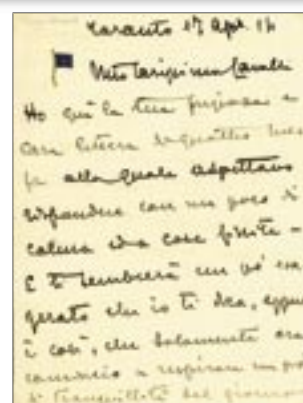 Taranto 17 Apr. 14
Mio carissimo
Ho qui la tua e
cara lettera di quattro mesi
fa alla quale aspettavo
rispondere con un poco di
calma ed a cose finite -
E ti sembrerà un po'
gerato che io ti dica, eppure
è così, che solamente ora
comincio a respirare un po'
di tranquillità dal giorno